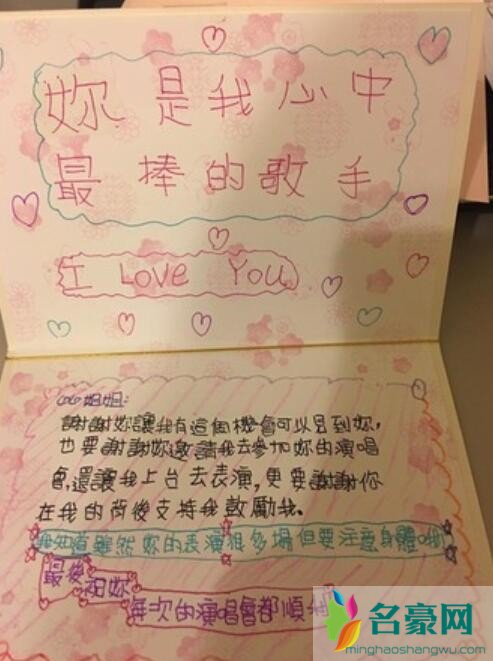 妳是我心中
最捧的歌手
I Love You
coco姐姐:
謝謝妳讓我有這個機會可以見到妳,
也要謝謝妳邀請我去參加妳的演唱
會,還讓我上台去表演,更要謝謝你
在我的背後支持我鼓勵我。
我知道雖然妳的表演很多場但要注意身體哦!
最後祝妳
每次的演唱會都順
名豪网
minghaoshangwu.com